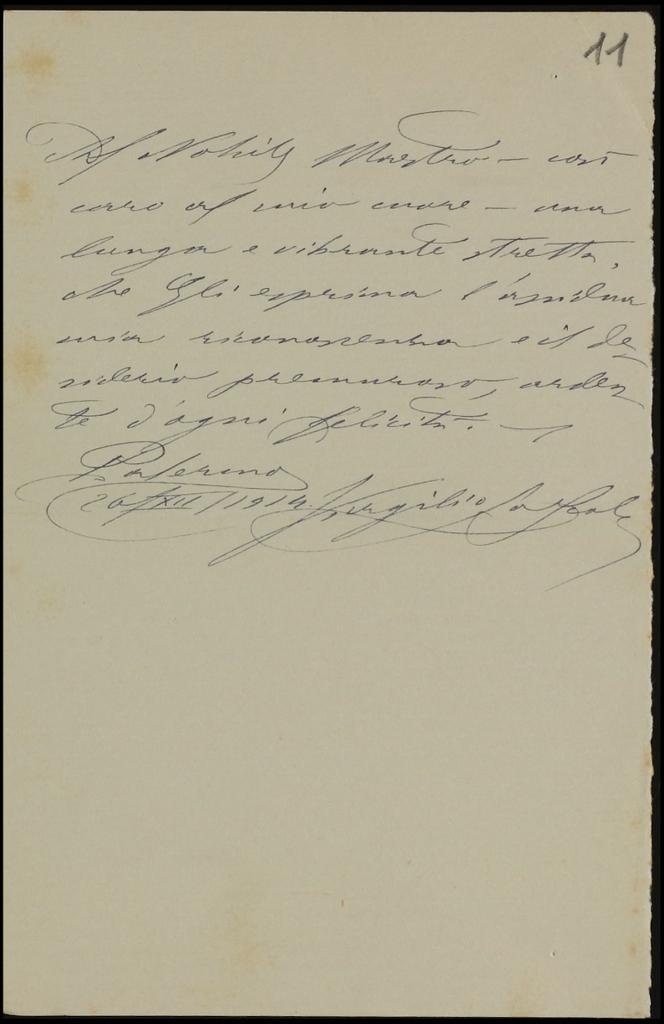 11
Al Nobile Maestro – così
caro al mio cuore – una
lunga e vibrante stretta,
che Gli esprima l'assidua
mia riconoscenza e il de-
siderio premuroso, arden-
te d'ogni felicità. –
Palermo
26/XII/1914. Virgilio